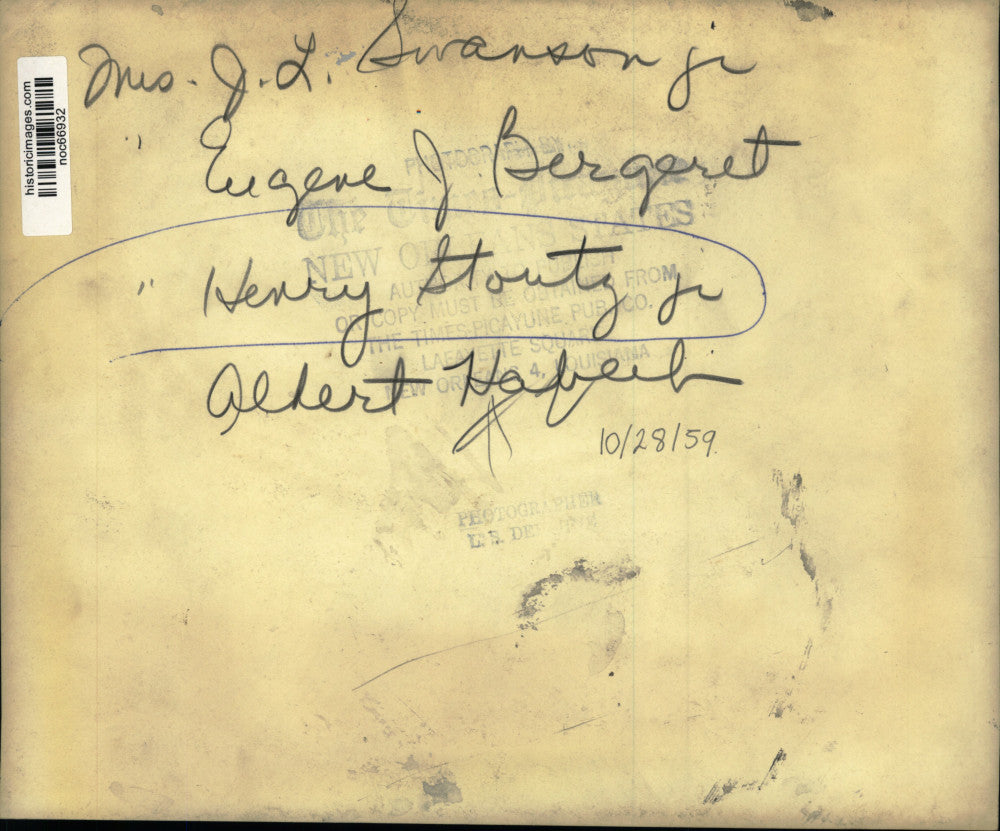 historicimages.com
noc66932
Mrs. J. L. Swanson jr
" Eugene J. Bergeret
" Henry Stoutz jr
Albert
10/28/59.
PHOTOGRAPH BY
The
NEW ORLEANS STATES
OR COPY MUST BE OBTAINED FROM
THE TIMES-PICAYUNE PUB. CO.
LAFAYETTE SQUARE
NEW ORLEANS 4, LOUISIANA
PHOTOGRAPHER